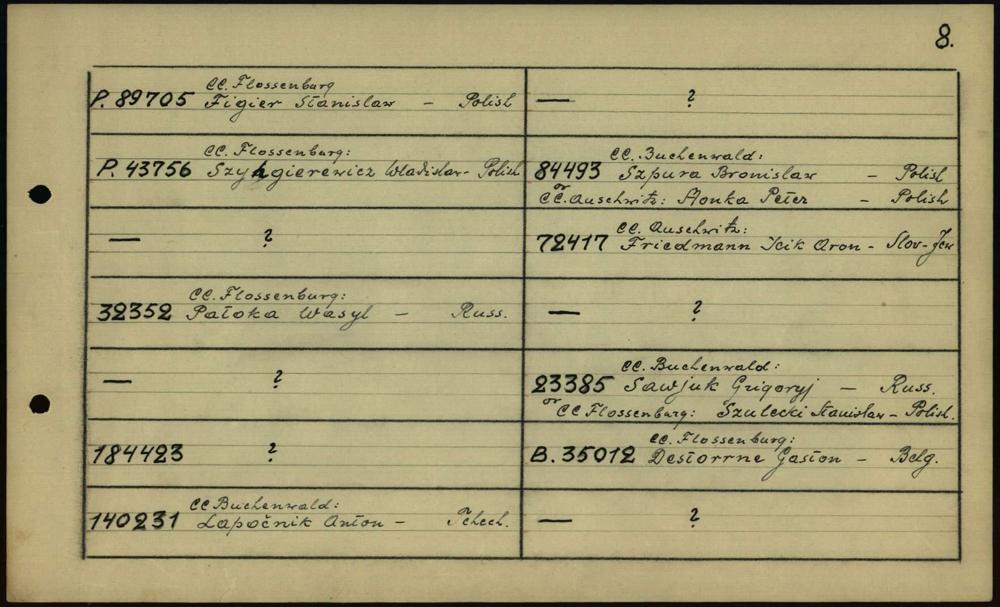 8.
CC. Flossenburg
P. 89705 Figier Stanislaw - Polish
— ?
CC. Flossenburg:
P. 43756 Szyngierewicz Wladislaw - Polish
CC. Buchenwald:
84493 Szpura Bronislaw - Polish
or CC. Auschwitz: Honka Peter - Polish
— ?
CC. Auschwitz:
72417 Friedmann Icik Aron - Slov-Jew
CC. Flossenburg:
32352 Patoka Wasyl - Russ.
— ?
— ?
CC. Buchenwald:
23385 Sawjuk Grigoryj - Russ.
or CC Flossenburg: Szulecki Stanislaw - Polish.
184423 ?
CC. Flossenburg:
B. 35012 Destorrne Gaston - Belg.
CC Buchenwald:
140231 Lapočnik Anton - Tchech.
— ?